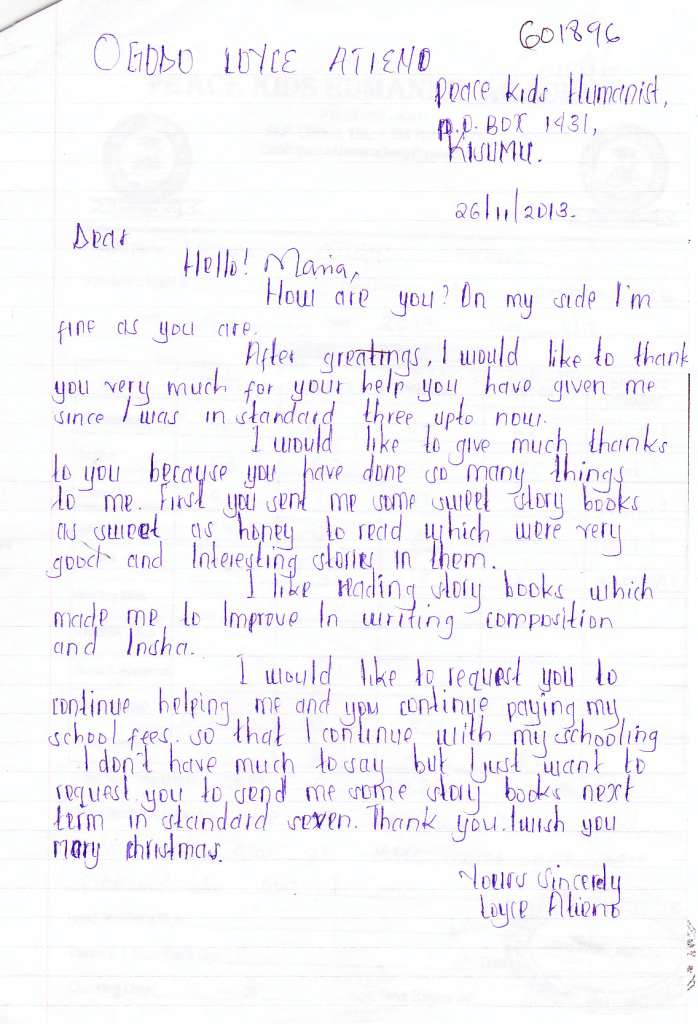 601896
OGOBO LOYCE ATIENO
Peace Kids Humanist,
P.O. BOX 1431,
KISUMU.
26/11/2013.
Dear
Hello! Maria,
How are you? On my side I'm
fine as you are.
After greatings, I would like to thank
you very much for your help you have given me
since I was in standard three upto now.
I would like to give much thanks
to you because you have done so many things
to me. First you sent me some sweet story books
as sweet as honey to read which were very
good and Interesting stories in them.
I like reading story books which
made me to Improve In writing composition
and Insha.
I would like to request you to
continue helping me and you continue paying my
school fees. so that I continue with my schooling
I don't have much to say but I just want to
request you to send me some story books next
term in standard seven. Thank you. I wish you
mary christmas.
Yours Sincerely
Loyce Atieno